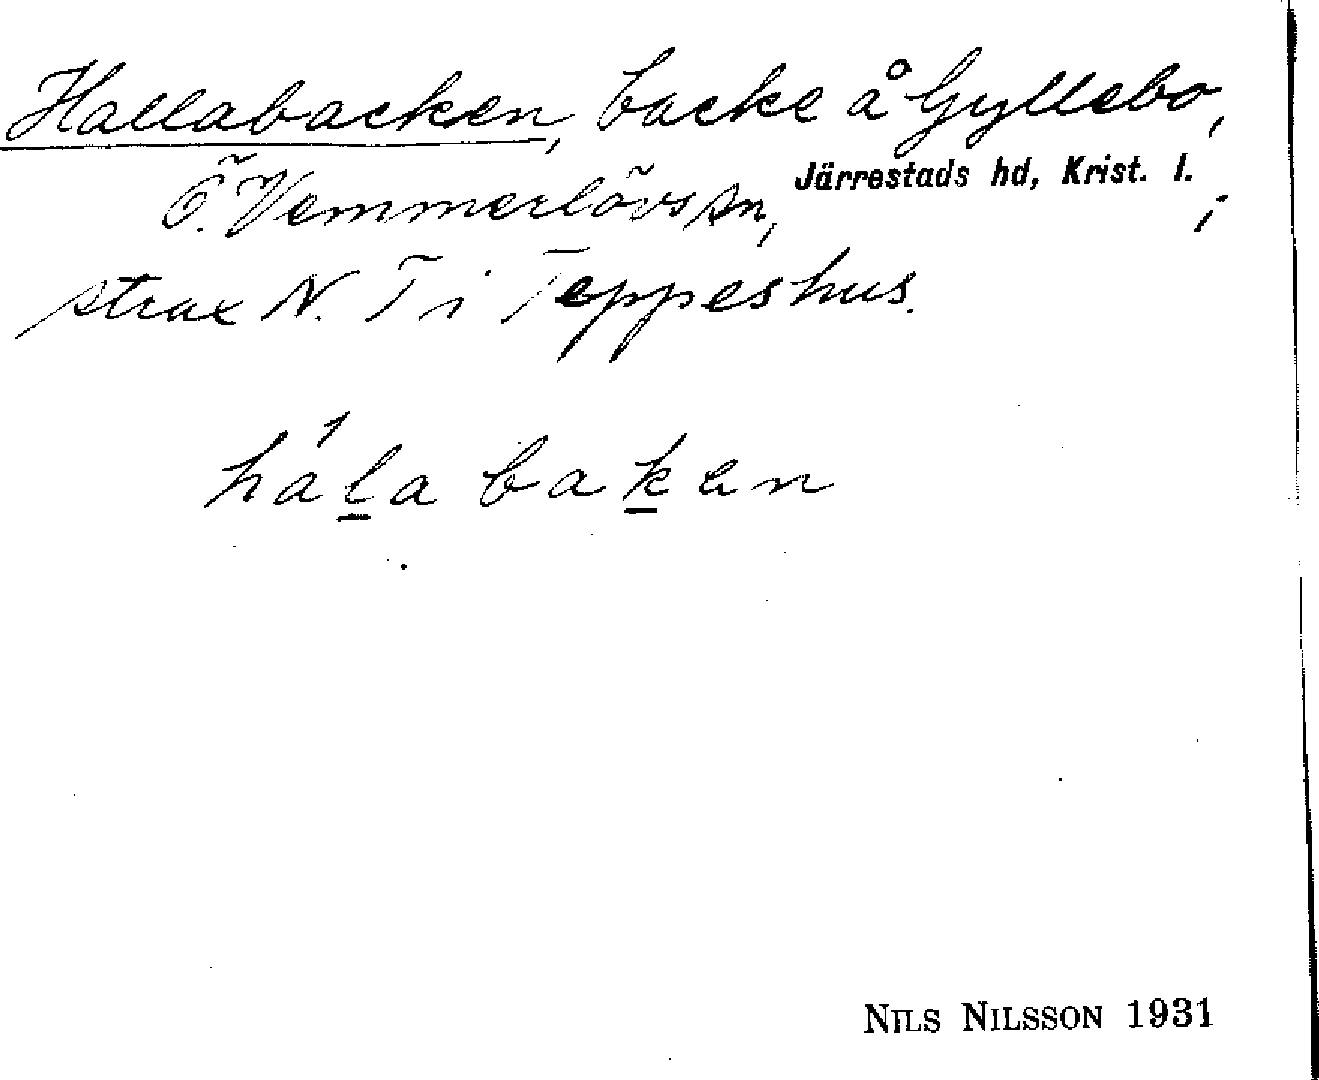 Hallabacken, backe å Gyllebo,
Ö. Vemmerlövs sn, Järrestads hd, Krist. l. ;
strax N. T i Teppeshus.
hálabaken
NILS NILSSON 1931